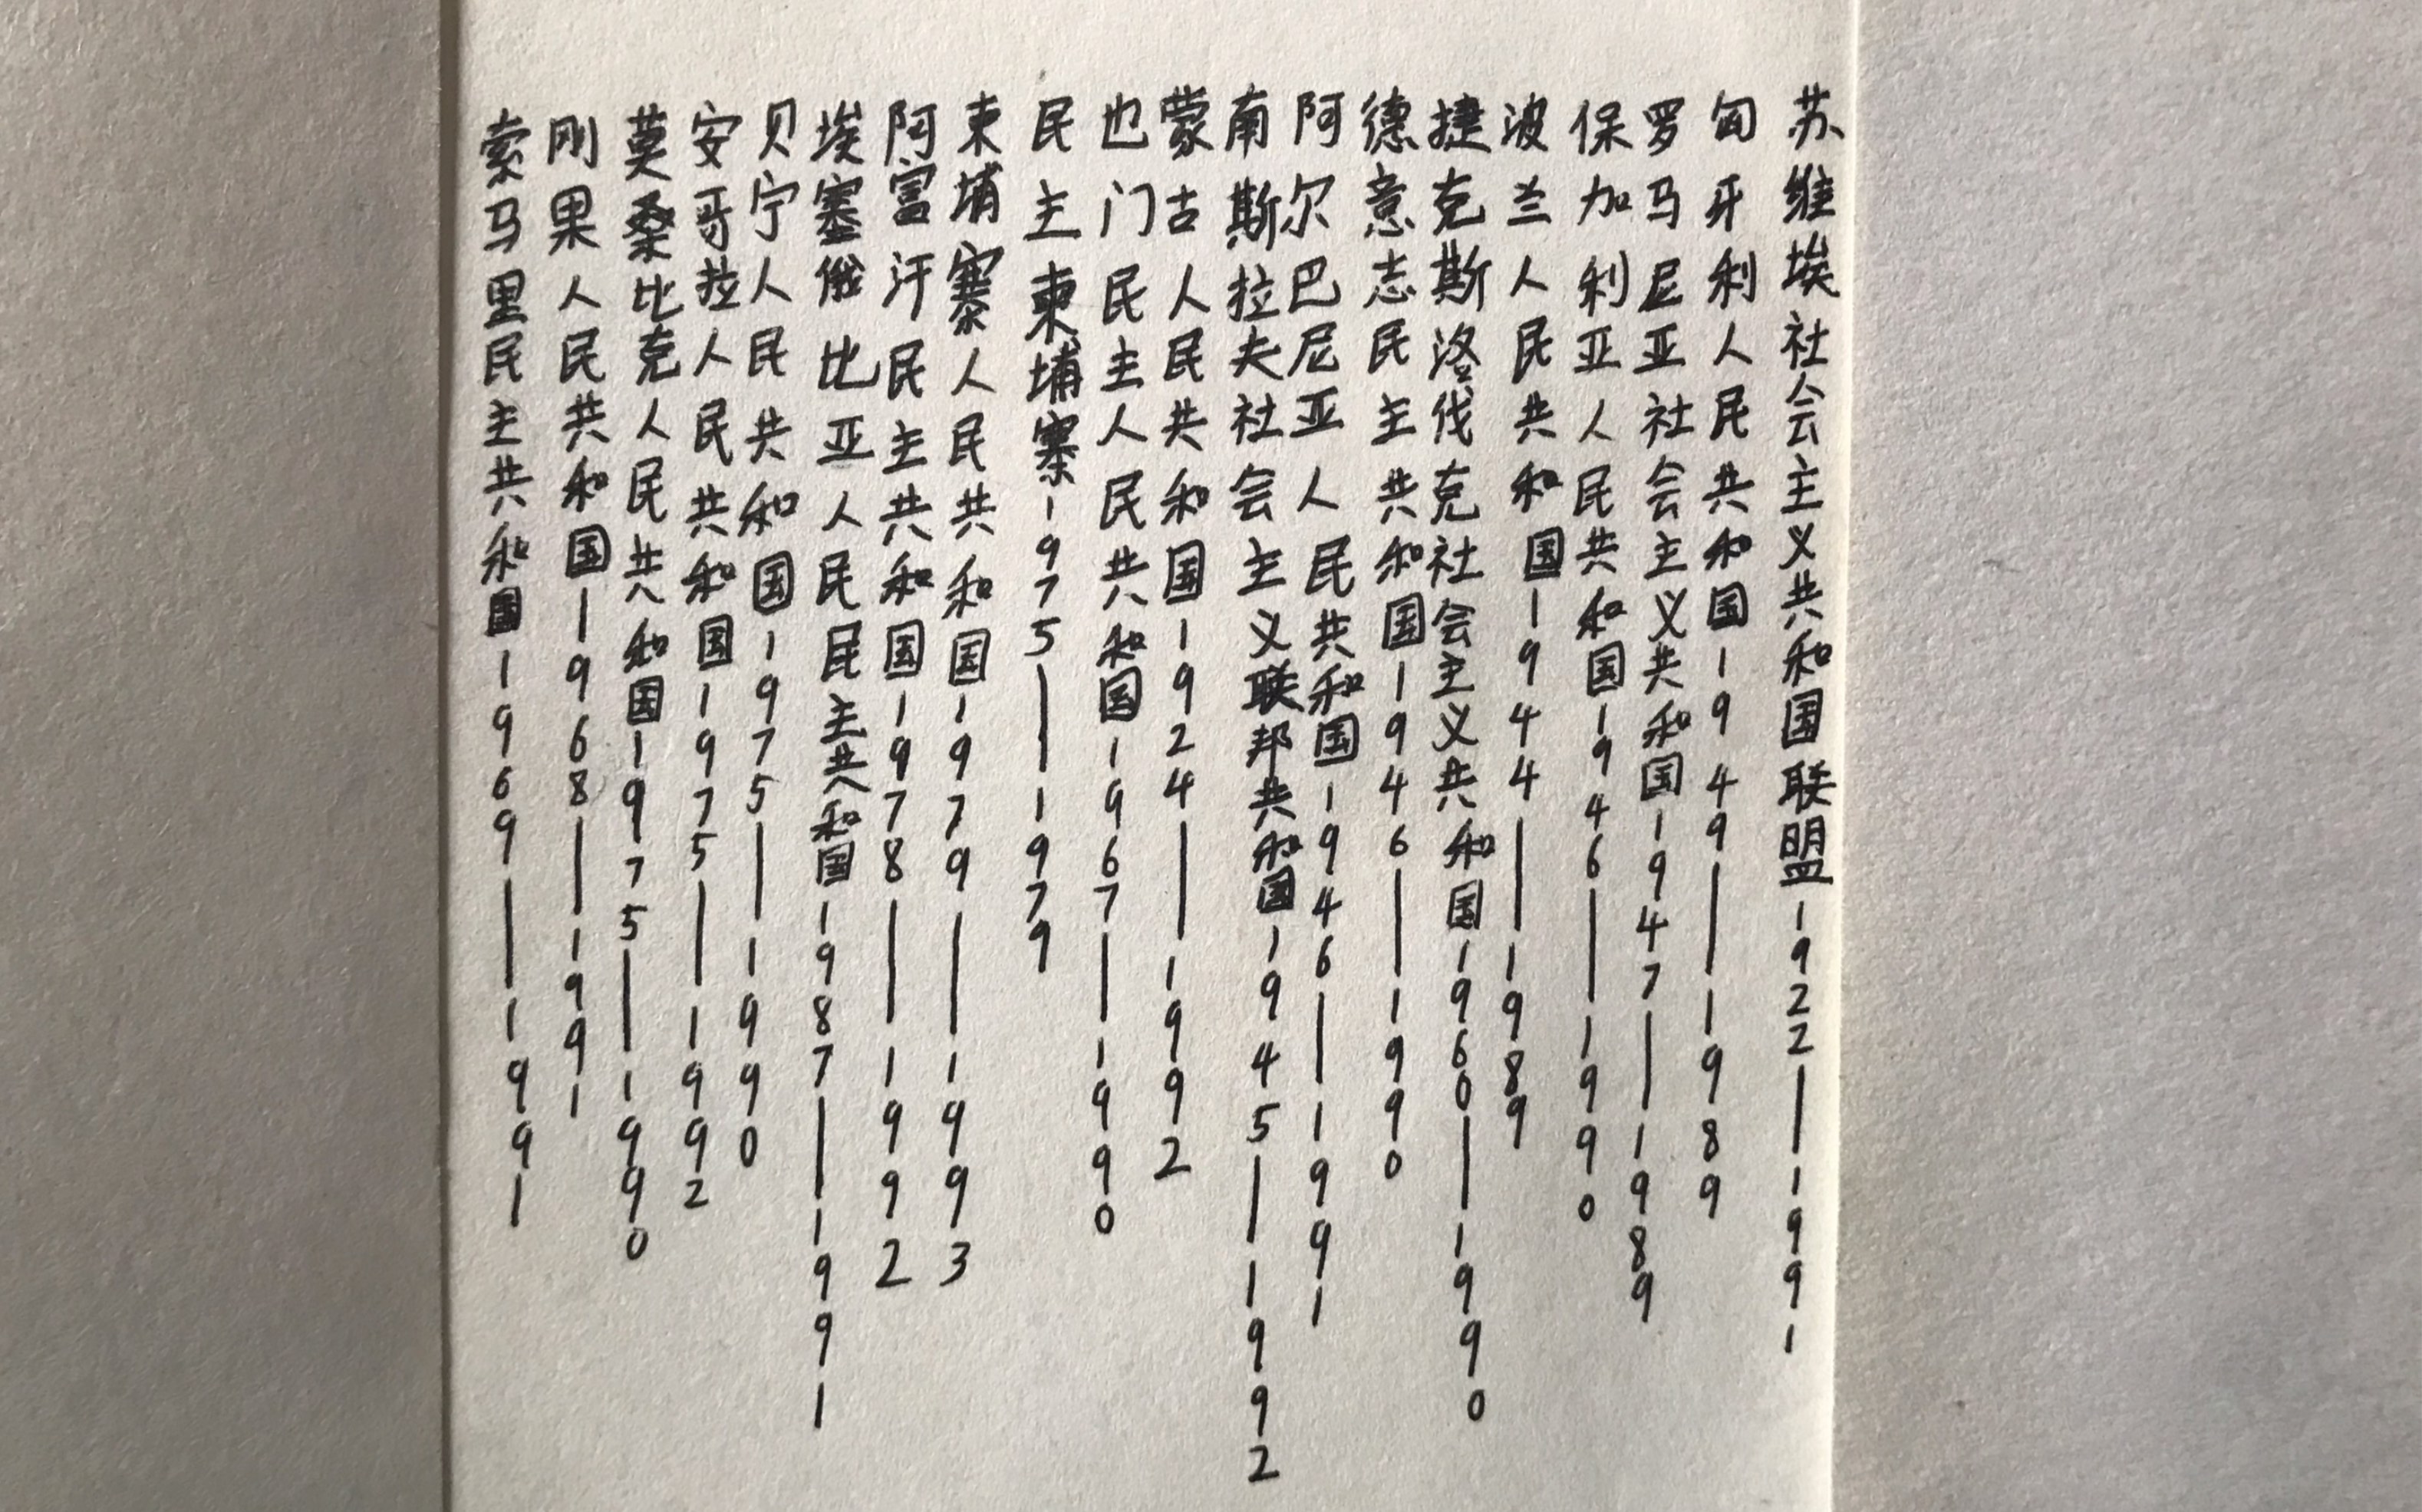 苏维埃社会主义共和国联盟1922—1991
匈牙利人民共和国1949—1989
罗马尼亚社会主义共和国1947—1989
保加利亚人民共和国1946—1990
波兰人民共和国1944—1989
捷克斯洛伐克社会主义共和国1960—1990
德意志民主共和国1946—1990
阿尔巴尼亚人民共和国1946—1991
南斯拉夫社会主义联邦共和国1945—1992
蒙古人民共和国1924—1992
也门民主人民共和国1967—1990
民主柬埔寨1975—1979
柬埔寨人民共和国1979—1993
阿富汗民主共和国1978—1992
埃塞俄比亚人民民主共和国1987—1991
贝宁人民共和国1975—1990
安哥拉人民共和国1975—1992
莫桑比克人民共和国1975—1990
刚果人民共和国1968—1991
索马里民主共和国1969—1991